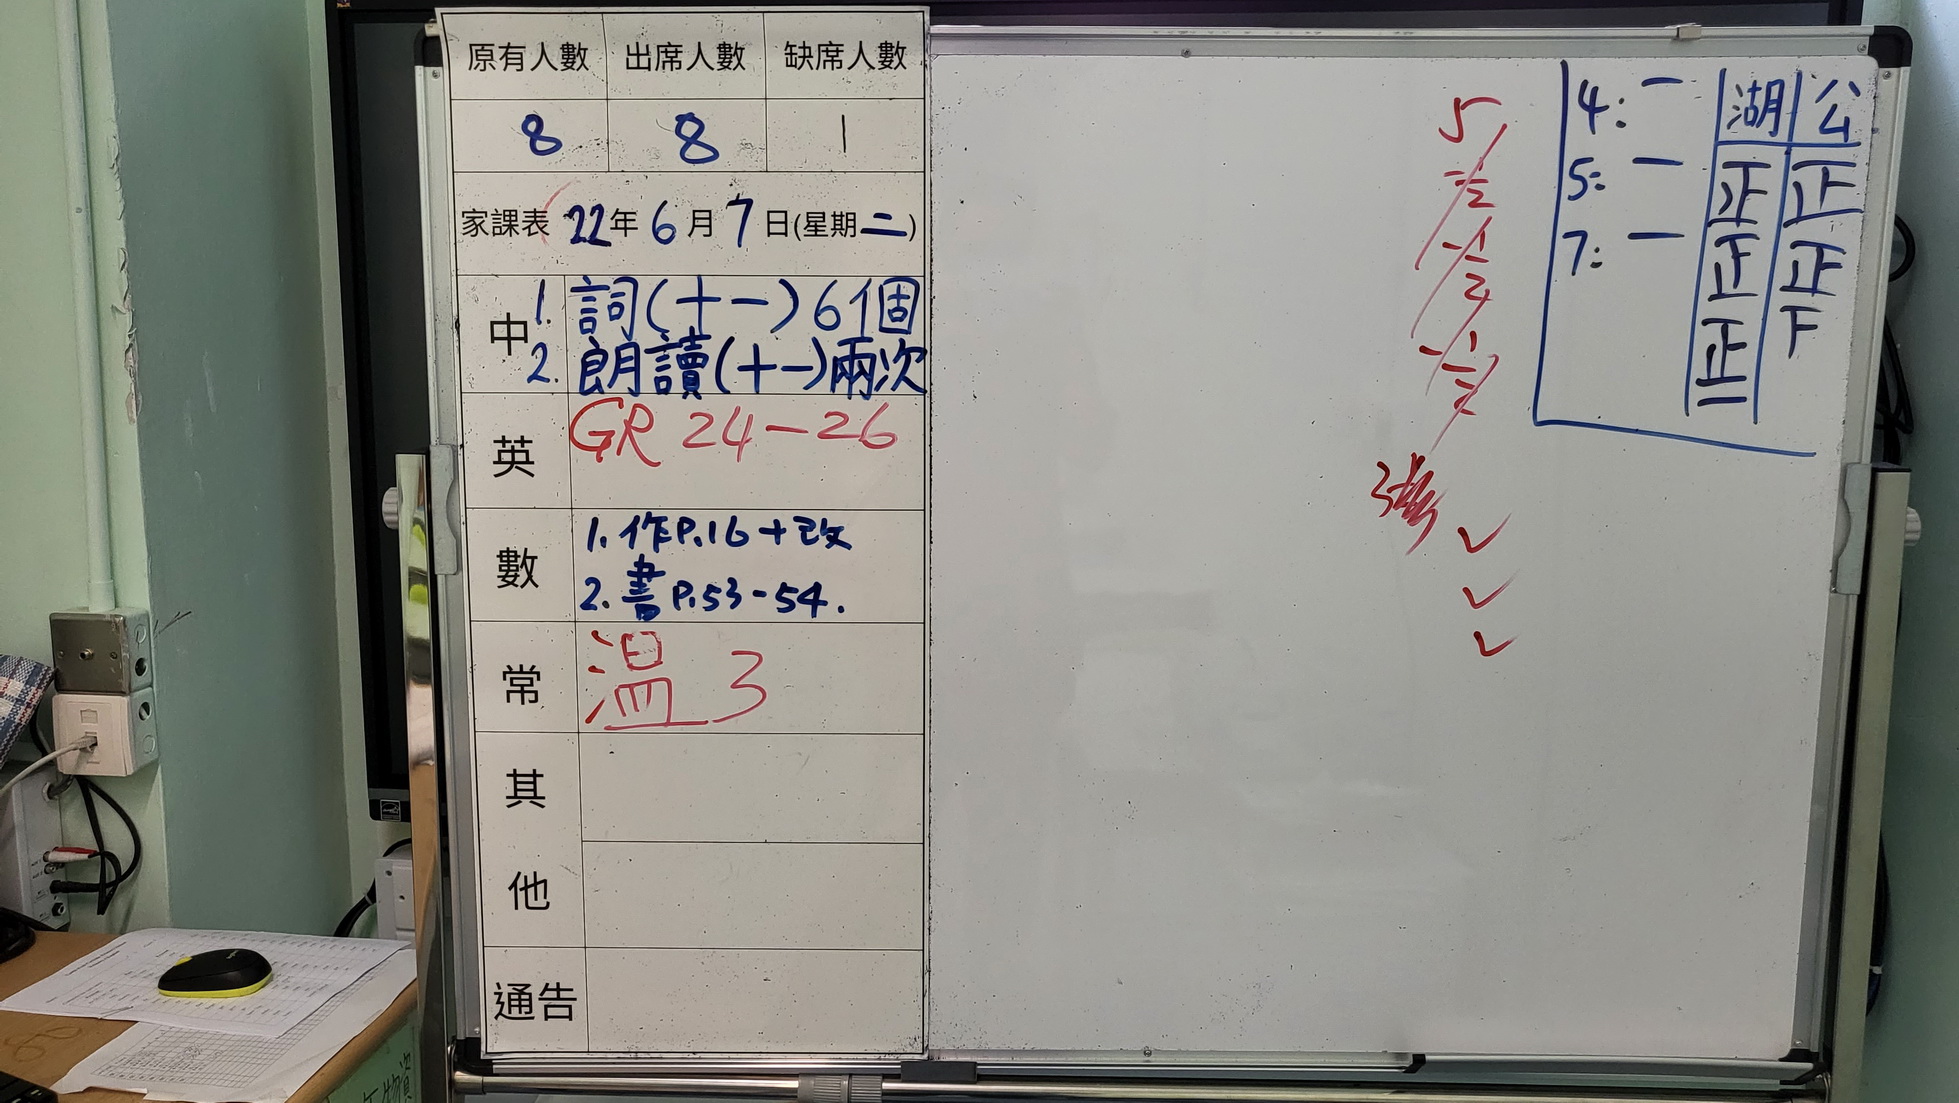 原有人數 出席人數 缺席人數
8 8 1
家課表 22年6月7日(星期二)
中 1. 詞(十一)6個
2. 朗讀(十一)兩次
英 GR 24-26
數 1. 作P.16+改
2. 書P.53-54.
常 溫 3
其
他
通告
5
4: 一
5: 一
7: 一
湖 公
正 正
正 正
正 下
二